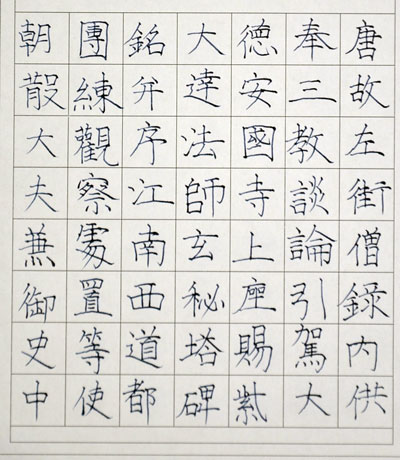 唐故左街僧錄内供
奉三教談論引駕大
德安國寺上座賜紫
大達法師玄秘塔碑
銘并序江南西道都
團練觀察處置等使
朝散大夫兼御史中